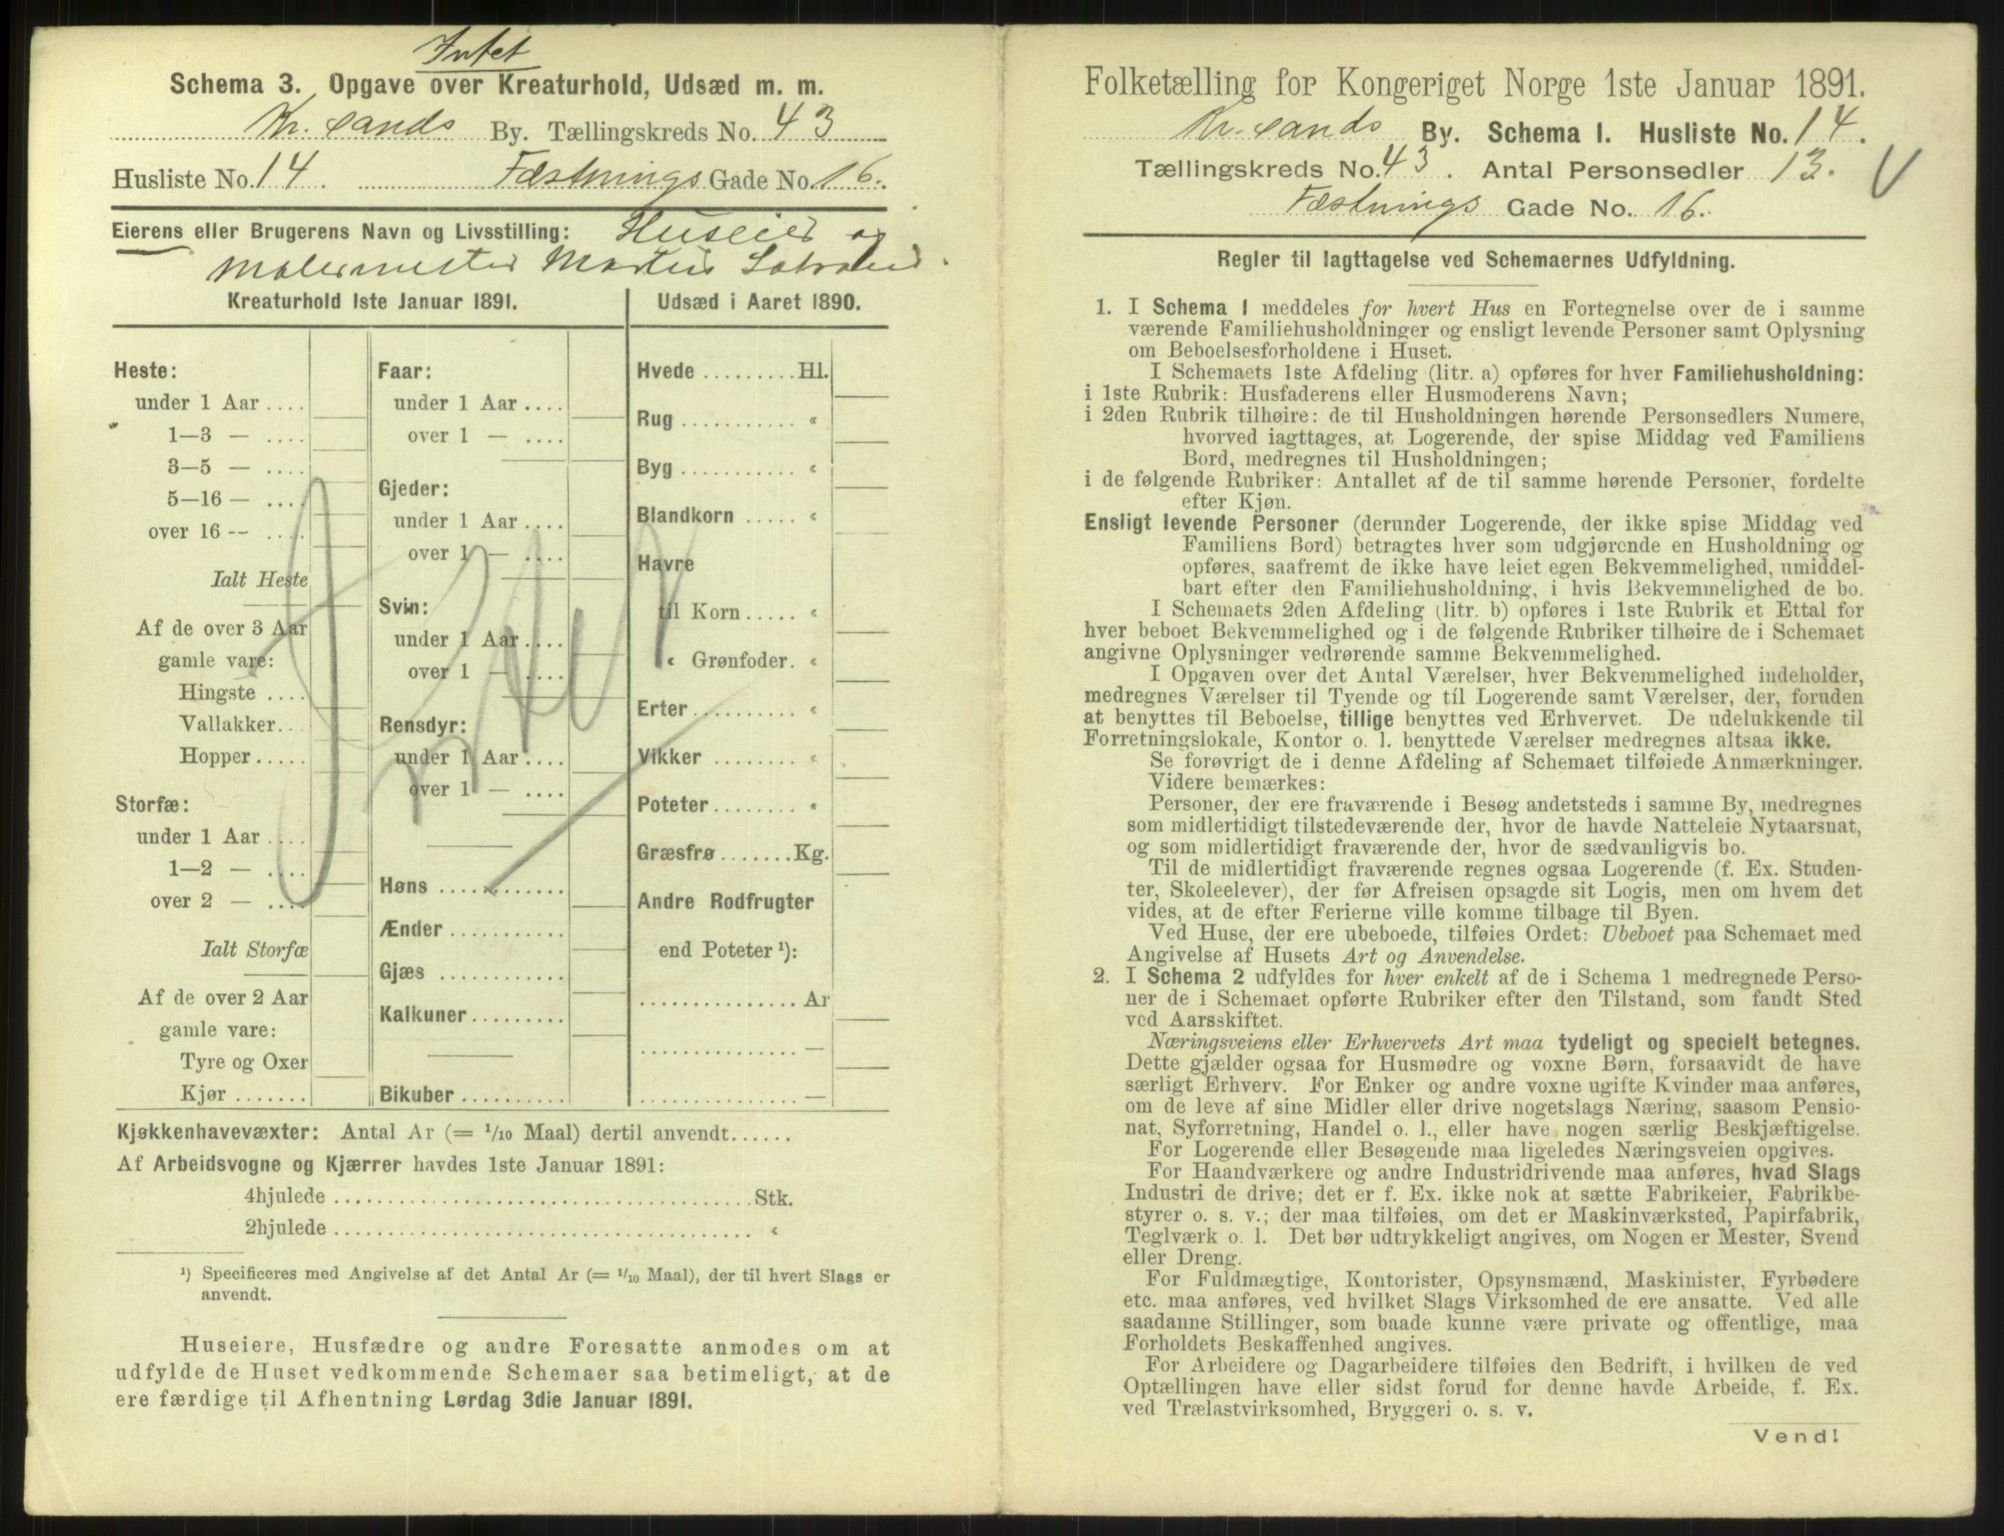 Intet
Schema 3. Opgave over Kreaturhold, Udsæd m. m.
Kr.sands By. Tællingskreds No. 43
Husliste No. 14. Fæstnings Gade No. 16.
Eierens eller Brugerens Navn og Livsstilling: Huseier og
Malermester
Kreaturhold 1ste Januar 1891.
Heste:
under 1 Aar ....
1—3 — ....
3—5 — ....
5—16 — ....
over 16 — ....
Ialt Heste
Af de over 3 Aar
gamle vare:
Hingste ....
Vallakker...
Hopper .....
Storfæ:
under 1 Aar ....
1—2 — ....
over 2 — ....
Ialt Storfæ
Af de over 2 Aar
gamle vare:
Tyre og Oxer
Kjør .......
Faar:
under 1 Aar ....
over 1 — ....
Gjeder:
under 1 Aar ....
over 1 — ....
Svin:
under 1 Aar ....
over 1 — ....
Rensdyr:
under 1 Aar ....
over 1 — ....
Høns ............
Ænder ...........
Gjæs ............
Kalkuner .........
Bikuber ..........
Udsæd i Aaret 1890.
Hvede ......... Hl.
Rug ........... «
Byg ........... «
Blandkorn ..... «
Havre
til Korn ..... «
« Grønfoder. «
Erter .......... «
Vikker ........ «
Poteter ........ «
Græsfrø ....... Kg.
Andre Rodfrugter
end Poteter ¹):
............... Ar
............... —
............... —
Kjøkkenhavevæxter: Antal Ar (= 1/10 Maal) dertil anvendt......
Af Arbeidsvogne og Kjærrer havdes 1ste Januar 1891:
4hjulede ........................................ Stk.
2hjulede ........................................ «
¹) Specificeres med Angivelse af det Antal Ar (= 1/10 Maal), der til hvert Slags er
anvendt.
Huseiere, Husfædre og andre Foresatte anmodes om at
udfylde de Huset vedkommende Schemaer saa betimeligt, at de
ere færdige til Afhentning Lørdag 3die Januar 1891.
Folketælling for Kongeriget Norge 1ste Januar 1891.
Kr.sands By. Schema I. Husliste No. 14.
Tællingskreds No. 43. Antal Personsedler 13.
Fæstnings Gade No. 16.
Regler til Iagttagelse ved Schemaernes Udfyldning.
1. I Schema 1 meddeles for hvert Hus en Fortegnelse over de i samme
værende Familiehusholdninger og ensligt levende Personer samt Oplysning
om Beboelsesforholdene i Huset.
I Schemaets 1ste Afdeling (litr. a) opføres for hver Familiehusholdning:
i 1ste Rubrik: Husfaderens eller Husmoderens Navn;
i 2den Rubrik tilhøire: de til Husholdningen hørende Personsedlers Numere,
hvorved iagttages, at Logerende, der spise Middag ved Familiens
Bord, medregnes til Husholdningen;
i de følgende Rubriker: Antallet af de til samme hørende Personer, fordelte
efter Kjøn.
Ensligt levende Personer (derunder Logerende, der ikke spise Middag ved
Familiens Bord) betragtes hver som udgjørende en Husholdning og
opføres, saafremt de ikke have leiet egen Bekvemmelighed, umiddel-
bart efter den Familiehusholdning, i hvis Bekvemmelighed de bo.
I Schemaets 2den Afdeling (litr. b) opføres i 1ste Rubrik et Ettal for
hver beboet Bekvemmelighed og i de følgende Rubriker tilhøire de i Schemaet
angivne Oplysninger vedrørende samme Bekvemmelighed.
I Opgaven over det Antal Værelser, hver Bekvemmelighed indeholder,
medregnes Værelser til Tyende og til Logerende samt Værelser, der, foruden
at benyttes til Beboelse, tillige benyttes ved Erhvervet. De udelukkende til
Forretningslokale, Kontor o. l. benyttede Værelser medregnes altsaa ikke.
Se forøvrigt de i denne Afdeling af Schemaet tilføiede Anmærkninger.
Videre bemærkes:
Personer, der ere fraværende i Besøg andetsteds i samme By, medregnes
som midlertidigt tilstedeværende der, hvor de havde Natteleie Nytaarsnat,
og som midlertidigt fraværende der, hvor de sædvanligvis bo.
Til de midlertidigt fraværende regnes ogsaa Logerende (f. Ex. Studen-
ter, Skoleelever), der før Afreisen opsagde sit Logis, men om hvem det
vides, at de efter Ferierne ville komme tilbage til Byen.
Ved Huse, der ere ubeboede, tilføies Ordet: Ubeboet paa Schemaet med
Angivelse af Husets Art og Anvendelse.
2. I Schema 2 udfyldes for hver enkelt af de i Schema 1 medregnede Perso-
ner de i Schemaet opførte Rubriker efter den Tilstand, som fandt Sted
ved Aarsskiftet.
Næringsveiens eller Erhvervets Art maa tydeligt og specielt betegnes.
Dette gjælder ogsaa for Husmødre og voxne Børn, forsaavidt de have
særligt Erhverv. For Enker og andre voxne ugifte Kvinder maa anføres,
om de leve af sine Midler eller drive nogetslags Næring, saasom Pensio-
nat, Syforretning, Handel o. l., eller have nogen særlig Beskjæftigelse.
For Logerende eller Besøgende maa ligeledes Næringsveien opgives.
For Haandværkere og andre Industridrivende maa anføres, hvad Slags
Industri de drive; det er f. Ex. ikke nok at sætte Fabrikeier, Fabrikbe-
styrer o. s. v.; der maa tilføies, om det er Maskinværksted, Papirfabrik,
Teglværk o. l. Det bør udtrykkeligt angives, om Nogen er Mester, Svend
eller Dreng.
For Fuldmægtige, Kontorister, Opsynsmænd, Maskinister, Fyrbødere
etc. maa anføres, ved hvilket Slags Virksomhed de ere ansatte. Ved alle
saadanne Stillinger, som baade kunne være private og offentlige, maa
Forholdets Beskaffenhed angives.
For Arbeidere og Dagarbeidere tilføies den Bedrift, i hvilken de ved
Optællingen have eller sidst forud for denne havde Arbeide, f. Ex.
ved Trælastvirksomhed, Bryggeri o. s. v.
Vend!